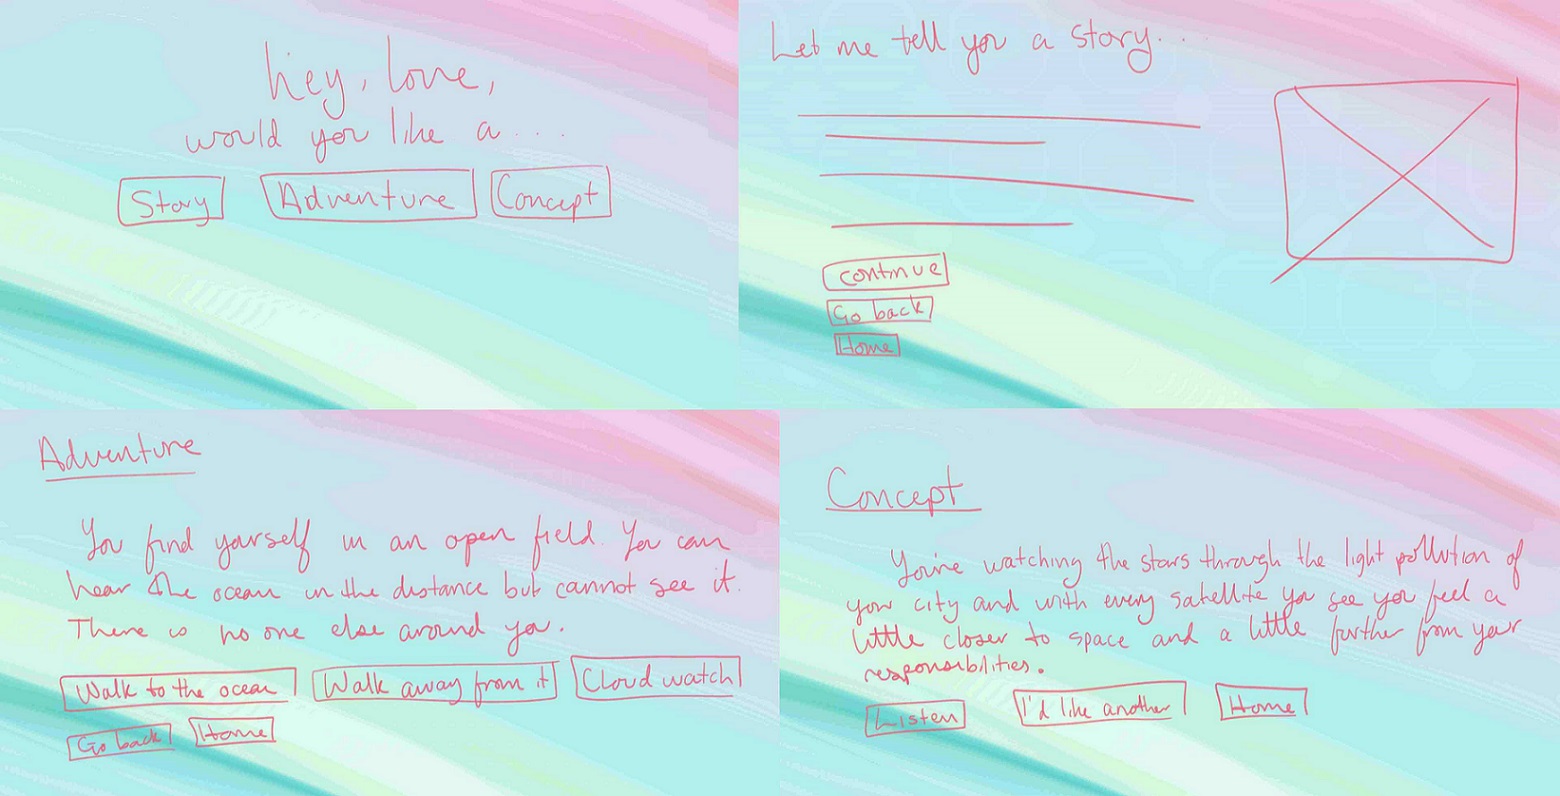 hey, love,
would you like a ....
Story Adventure Concept
Let me tell you a story...
continue
Go back
Home
Adventure
You find yourself in an open field. You can
hear the ocean in the distance but cannot see it.
There is no one else around you.
Walk to the ocean Walk away from it Cloud watch
Go back Home
Concept
You're watching the stars through the light pollution of
your city and with every satellite you see you feel a
little closer to space and a little further from your
responsibilities.
Listen I'd like another Home